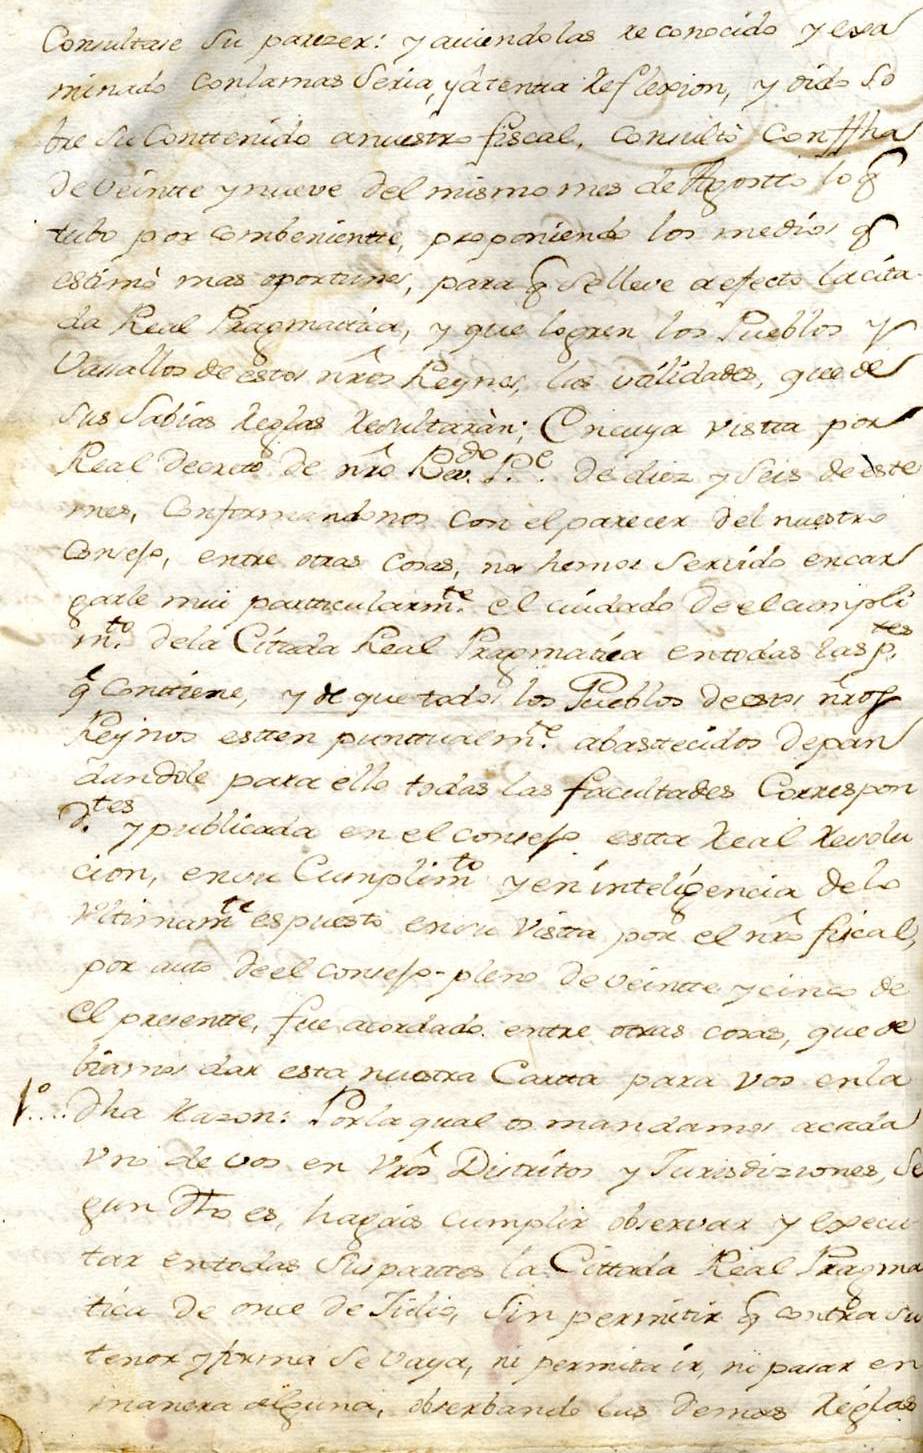 Consultase su parezer: y auiendolas reconocido y exa
minado con la mas seria, y atenta Reflexion, y oido so
bre su Conttenido a nuestro fiscal, consultò con ffha
de veintte y nueve del mismo mes de Agostto lo q̃
tubo por combenientte, proponiendo los medios q̃
estimò mas oportunos, para q̃ se lleve a efecto la cita
da Real Pragmatica, y que logren los Pueblos y
Vasallos de estos nr̃os Reynos, las utilidades, que de
sus Sabias Reglas Resultaràn; En cuya vistta por
Real Decreto de nr̃o de diez y seis de èste
mes, conformandonos con el parecer del nuestro
Consejo, entre otras cosas, nos hemos servido encar
garle mui parttucularmte. el cuidado de el cumpli
mto. de la Citada Real Pragmatica en todas las ptes.
q̃ conttiene, y de que todos los Pueblos de estos nr̃os
Reynos estten punttualmte. abasttecidos de pan
dandole para ello todas las facultades Correspon
dtes. y publicada en el consejo estta Real Resolu
cion, en su Cumplimto y en inteligencia de lo
Ultimamte espuesto en su Vistta por el nr̃o fiscal,
por auto de el consejo-pleno de veintte y cinco de
el presentte, fue acordado entre otras cosas, que de
biamos dar esta nuestra Cartta para vos en la
1º.... dha Razon: Por la qual os mandamos a cada
Uno de vos en Vr̃os Distritos y Jurisdiziones, se
gun dho es, hagais cumplir observar y execu
tar en todas sus parttes la Cittada Real Pragma
tica de once de Julio, sin permitir q̃ contra su
tenor y forma se vaya, ni permita ir, ni pasar en
manera alguna, obserbando las demas Reglas